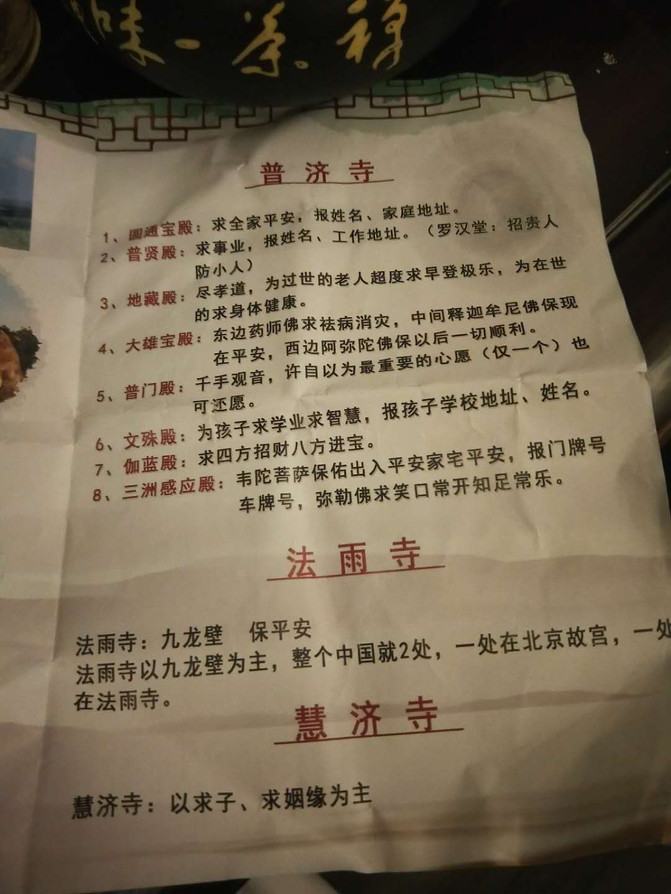 味一茶禅
普济寺
1、圆通宝殿：求全家平安，报姓名、家庭地址。
2、普贤殿：求事业，报姓名、工作地址。（罗汉堂：招贵人
防小人）
3、地藏殿：尽孝道，为过世的老人超度求早登极乐，为在世
的求身体健康。
4、大雄宝殿：东边药师佛求祛病消灾，中间释迦牟尼佛保现
在平安，西边阿弥陀佛保以后一切顺利。
5、普门殿：千手观音，许自以为最重要的心愿（仅一个）也
可还愿。
6、文殊殿：为孩子求学业求智慧，报孩子学校地址、姓名。
7、伽蓝殿：求四方招财八方进宝。
8、三洲感应殿：韦陀菩萨保佑出入平安家宅平安，报门牌号
车牌号，弥勒佛求笑口常开知足常乐。
法雨寺
法雨寺：九龙壁 保平安
法雨寺以九龙壁为主，整个中国就2处，一处在北京故宫，一处
在法雨寺。
慧济寺
慧济寺：以求子、求姻缘为主